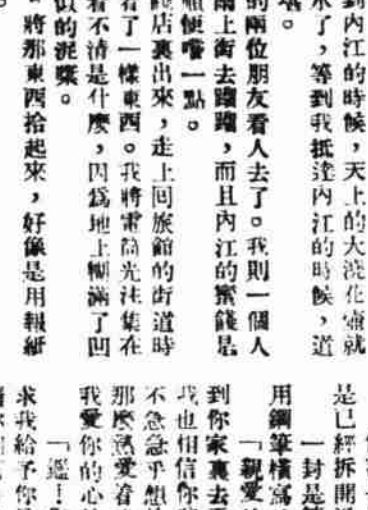 到內江的時候，天上的大澆花壺就
來了，等到我抵達內江的時候，道
的兩位朋友看人去了。我則一個人
雨上街去蹓蹓，而且內江的蜜餞是
順便嚐一點。
店裏出來，走上回旅館的街道時
看了一樣東西。我將電筒光注集在
看不清是什麼，因爲地上糊滿了凹
似的泥漿。
將那東西拾起來，好像是用報紙
是已經拆開
一封是
用鋼筆橫寫
「親愛
到你家裏去
我也相信你
不急急乎想
那麼熱愛着
我愛你的心
「鑑！
求我給予你